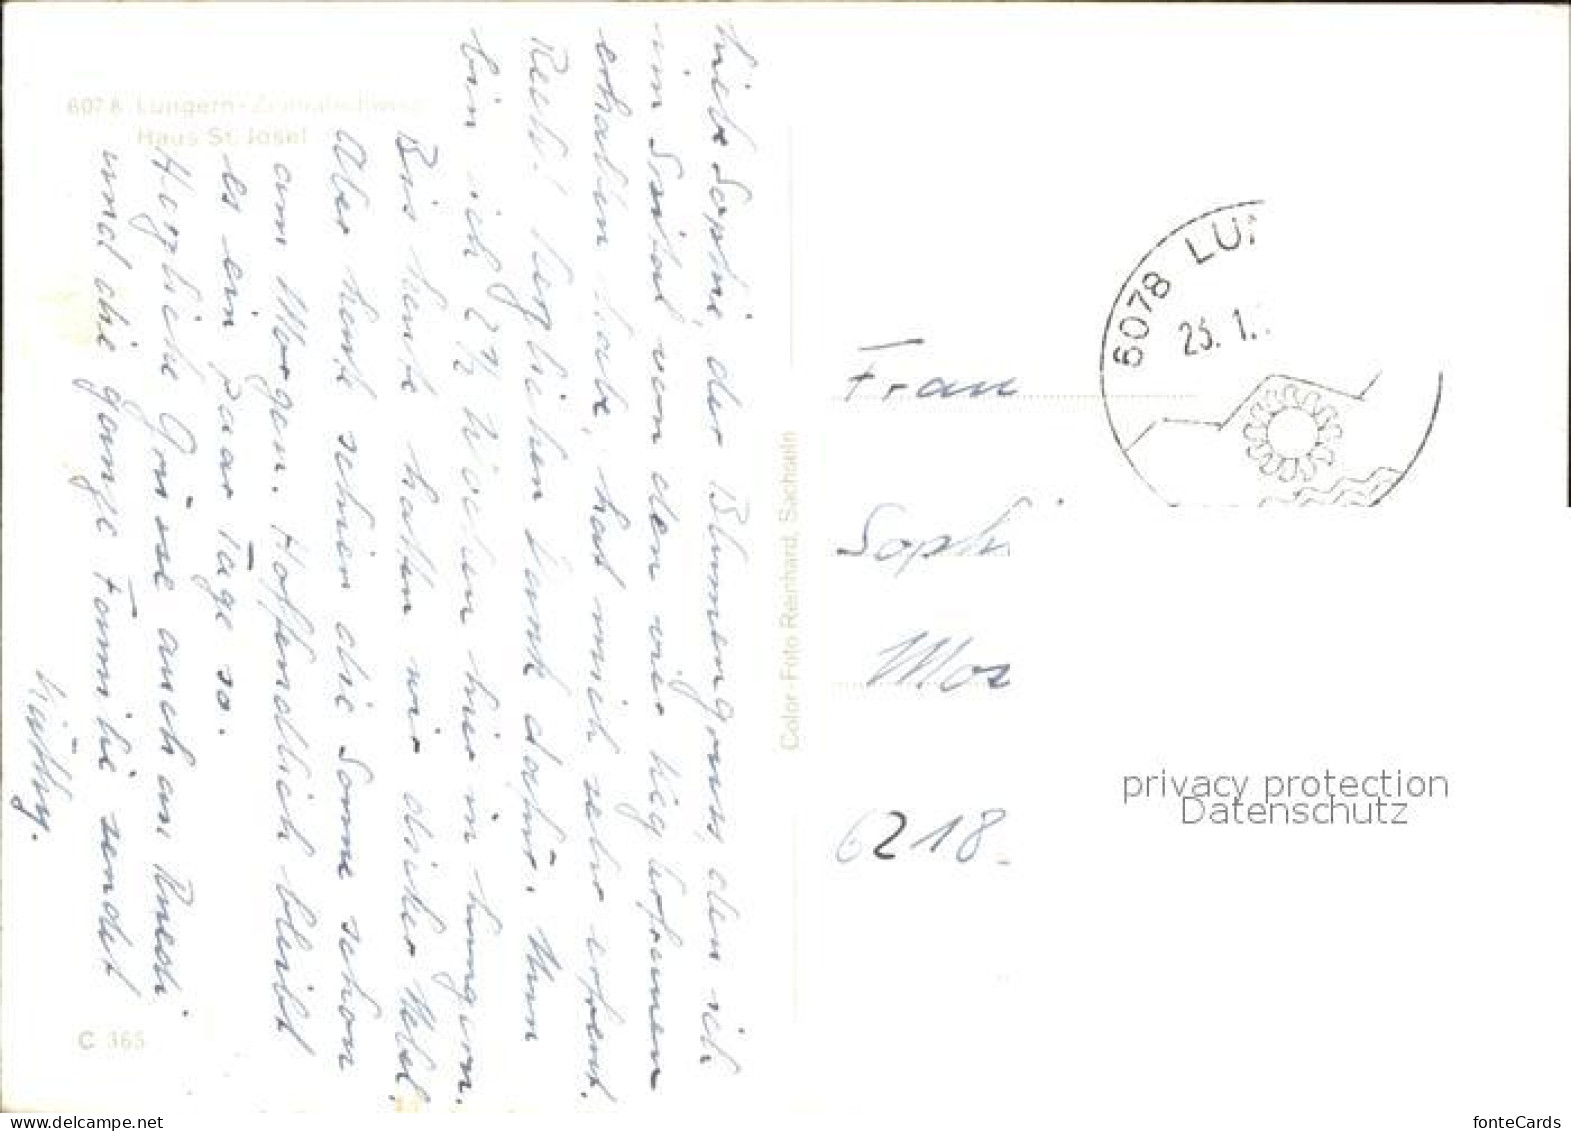 6078 Lungern-Zentralschweiz
Haus St. Josef
Liebe Sophie, der Blumengruss, den ich
im Spital von den vier
erhalten habe, hat mich sehr erfreut.
Recht herzlichen Dank dafür. Nun
bin ich 2½ Wochen hier in Lungern.
Bis heute hatten wir dicker Nebel.
Aber heute schien die Sonne schon
am Morgen. Hoffendlich bleibt
es ein paar Tage so.
Herzliche Grüsse auch an Ruedi
und die ganze Familie sendet
C 365
Color-Foto Reinhard, Sachseln
6078 LU
25. 1.
Frau
Sophi
Mos
6218
privacy protection
Datenschutz
fonteCards